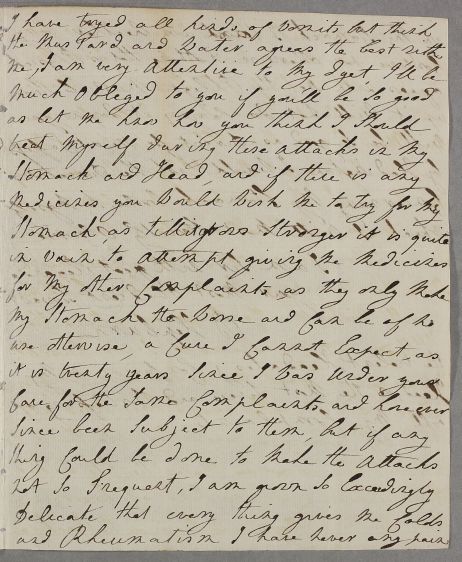 I have tryed all kinds of Vomits but think
the Mustard and Water agrees the best with
me, I am very Attentive to My dyet I'll be
Much Obliged to you if you'll be so good
as let me know how you think I Should
treat Myself during these attacks in My
Stomach and Head, and if there is any
Medicines you Would Wish Me to try for My
Stomach, as till it grows Stronger it is quite
in vain to attempt giving Me Medicines
for My other Complaints as they only Make
My Stomach the Worse and Can be of no
use otherwise, a Cure I Cannot Expect, as
it is twenty years Since I Was Under your
Care for the Same Complaints and have ever
Since been Subject to them, but if any
thing Could be done to Make the Attacks
not So Frequent, I am grown So Exceedingly
Delicate that every thing gives Me Colds
and Rheumatism I have never any pain